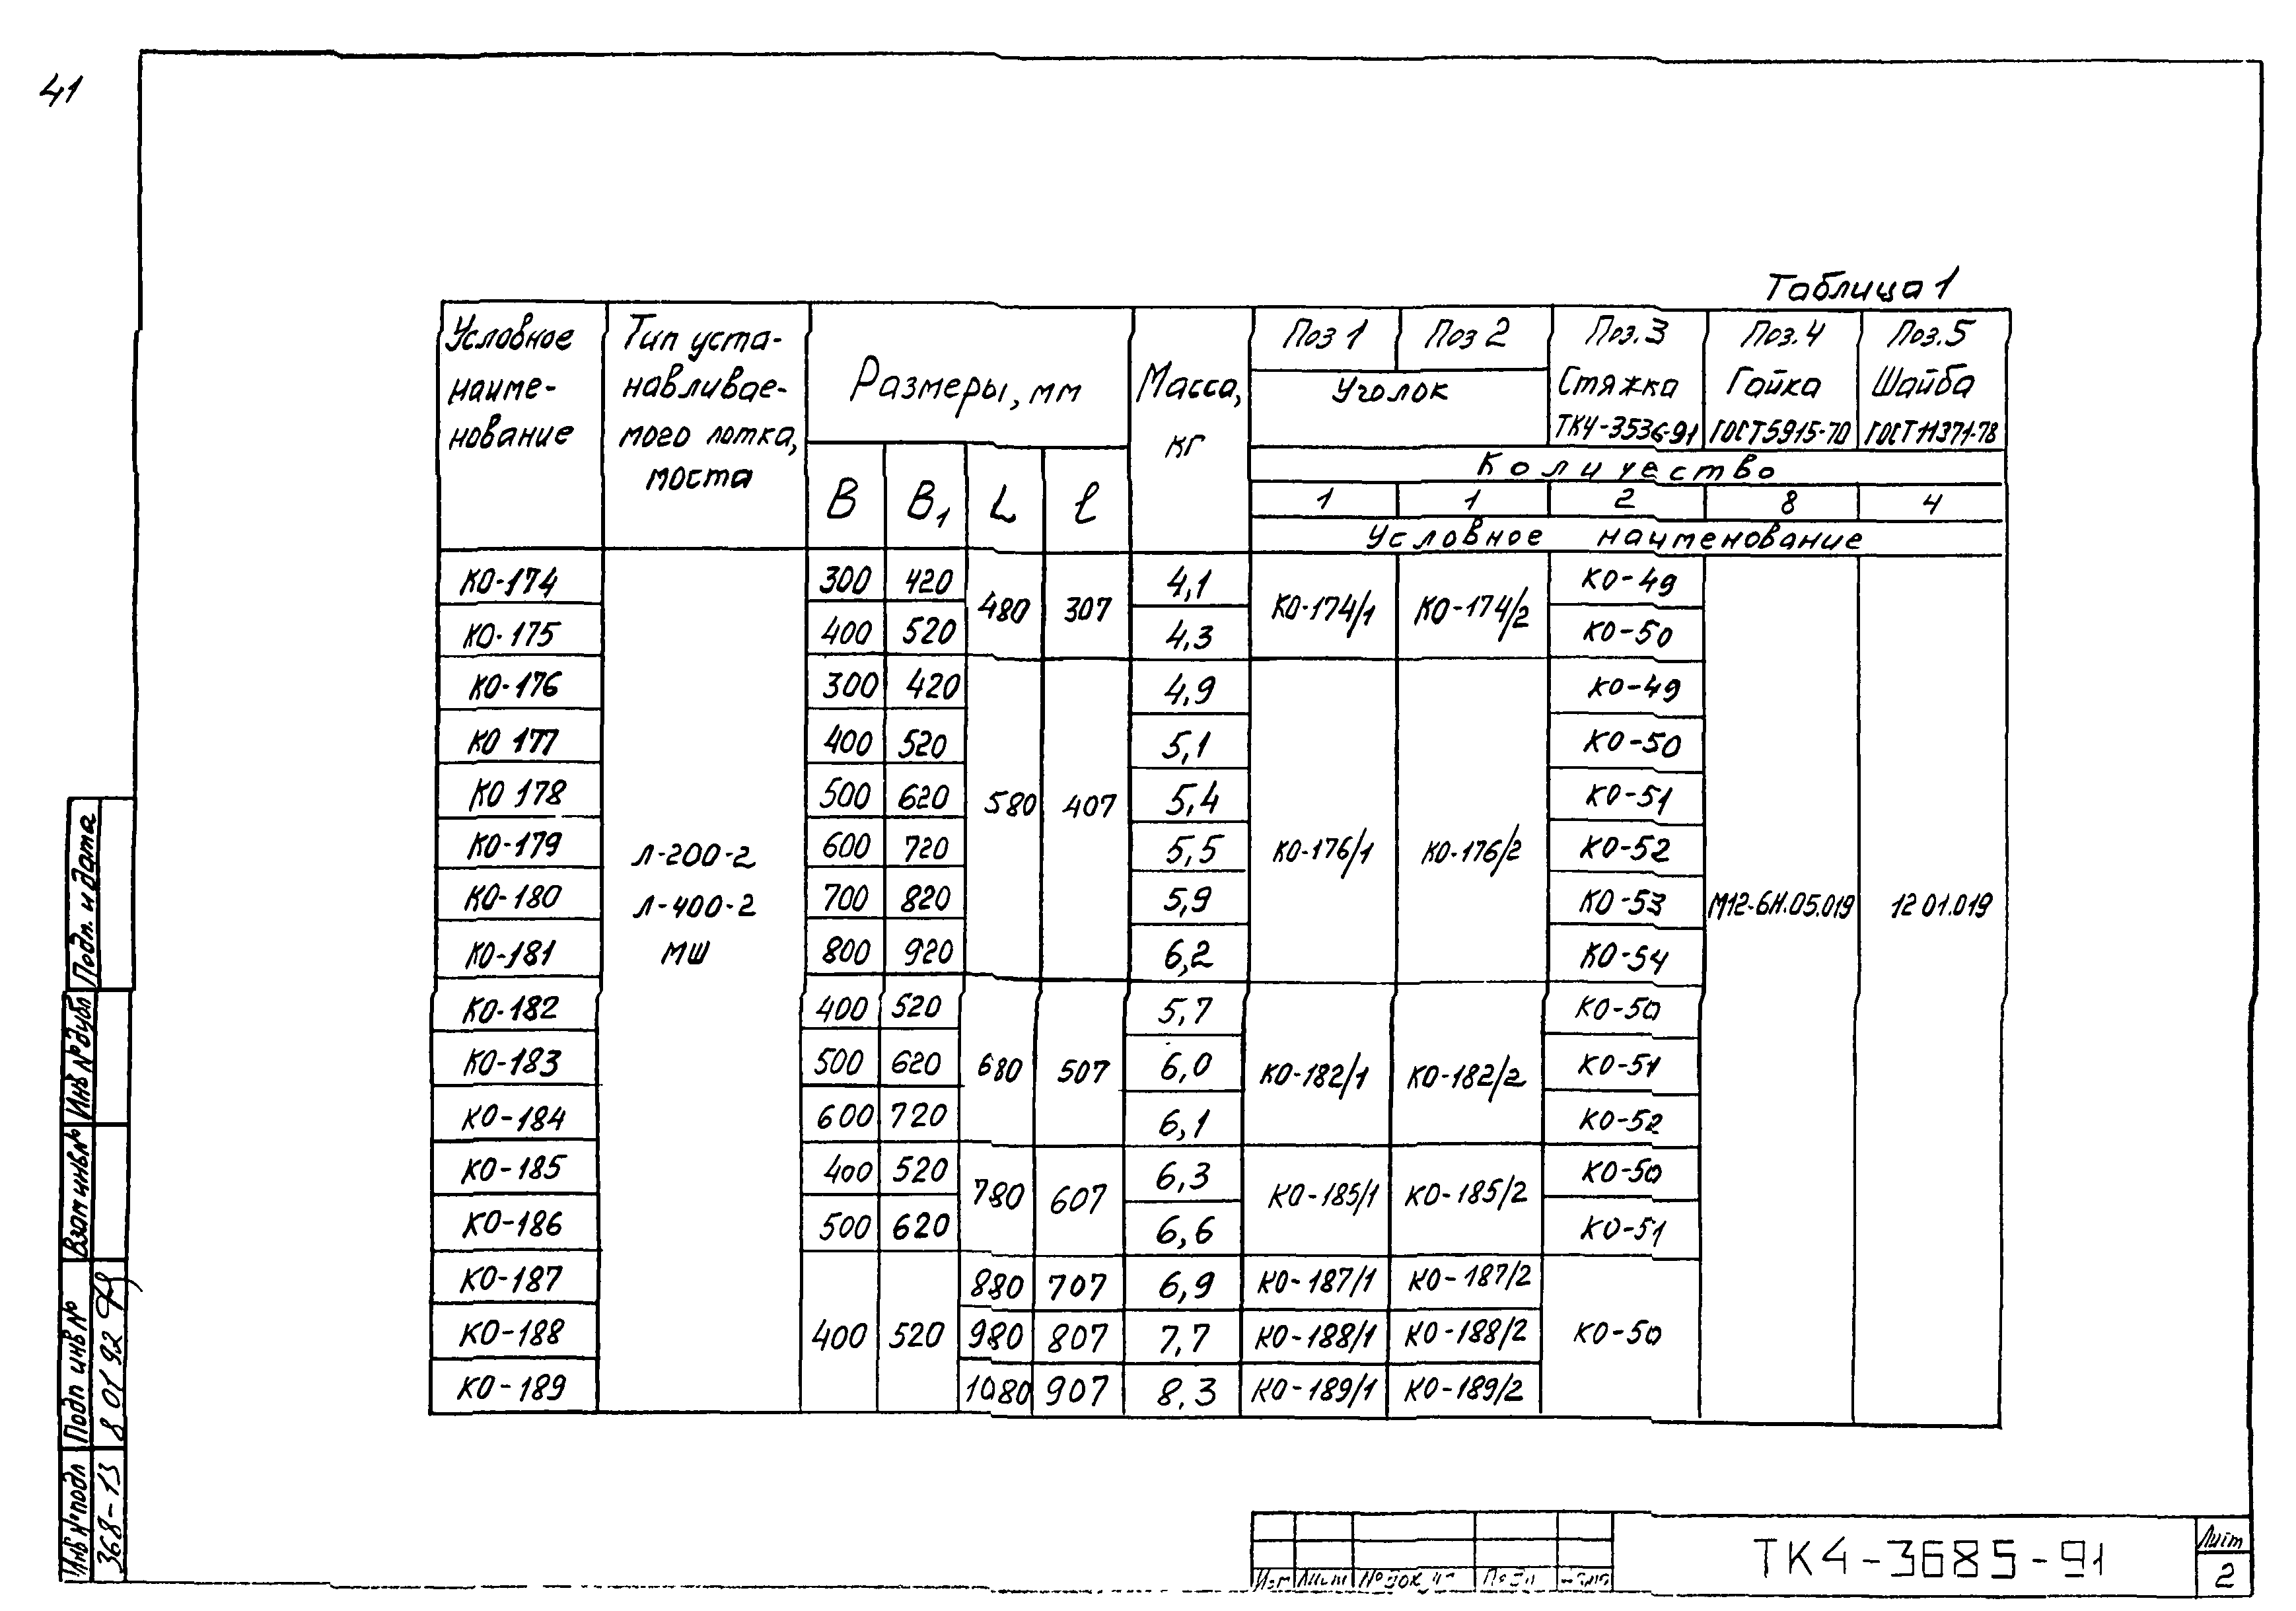 41
Таблица 1
Условное наиме-нование | Тип уста-навливае-мого лотка, моста | Размеры, мм | Масса, кг | Поз 1 | Поз 2 | Поз.3 | Поз.4 | Поз.5
Уголок | Стяжка | Гайка | Шайба
ТК4-3536-91 | ГОСТ5915-70 | ГОСТ11371-78
B | B1 | L | ℓ
Количество
1 | 1 | 2 | 8 | 4
Условное наименование
КО-174 | 300 | 420 | 480 | 307 | 4,1 | КО-174/1 | КО-174/2 | КО-49
КО-175 | 400 | 520 | 4,3 | КО-50
КО-176 | 300 | 420 | 4,9 | КО-49
КО 177 | 400 | 520 | 5,1 | КО-50
КО 178 | 500 | 620 | 580 | 407 | 5,4 | КО-51
КО-179 | Л-200-2 | 600 | 720 | 5,5 | КО-176/1 | КО-176/2 | КО-52
КО-180 | Л-400-2 | 700 | 820 | 5,9 | КО-53 | М12-6Н.05.019 | 12 01.019
КО-181 | МШ | 800 | 920 | 6,2 | КО-54
КО-182 | 400 | 520 | 5,7 | КО-50
КО-183 | 500 | 620 | 680 | 507 | 6,0 | КО-182/1 | КО-182/2 | КО-51
КО-184 | 600 | 720 | 6,1 | КО-52
КО-185 | 400 | 520 | 780 | 607 | 6,3 | КО-185/1 | КО-185/2 | КО-50
КО-186 | 500 | 620 | 6,6 | КО-51
КО-187 | 880 | 707 | 6,9 | КО-187/1 | КО-187/2
КО-188 | 400 | 520 | 980 | 807 | 7,7 | КО-188/1 | КО-188/2 | КО-50
КО-189 | 1080 | 907 | 8,3 | КО-189/1 | КО-189/2
Подп. и дата
Инв №дубл
Взам инв№
Подп инв №
8 01 92
Инв №подл
368-13
Изм Лист
ТК4-3685-91
Лист
2